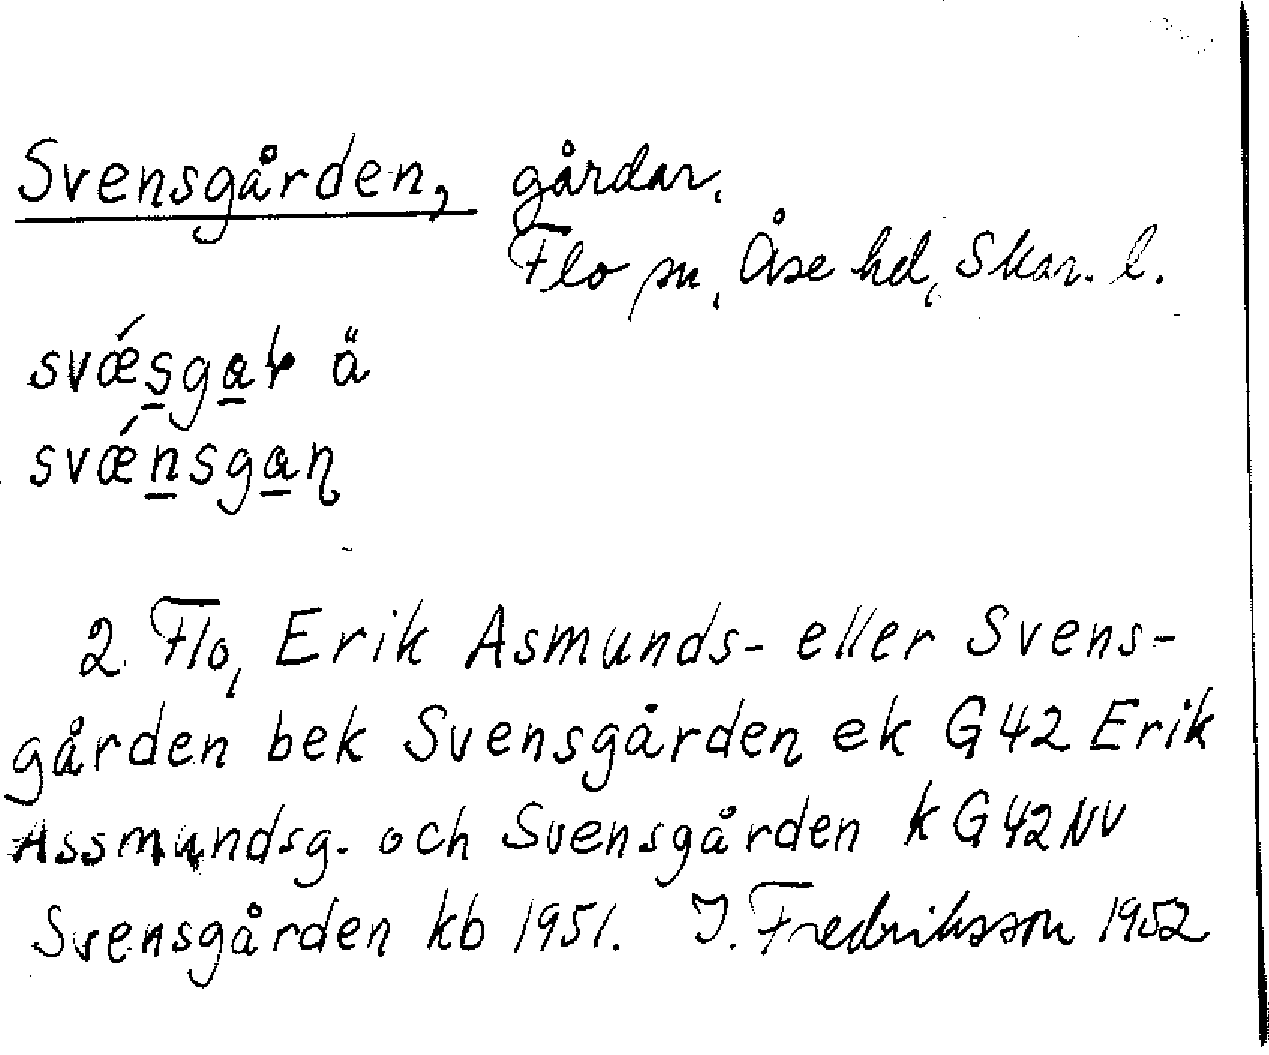 Svensgården, gårdar.
Flo sn, Åse hd, Skar. l.
svǽsgar ä
svǽnsgaɳ
2 Flo, Erik Asmunds- eller Svens-
gården bek Svensgården ek G42 Erik
Assmundsg. och Svensgården k G42NV
Svensgården kb 1951. I. Fredriksson 1952